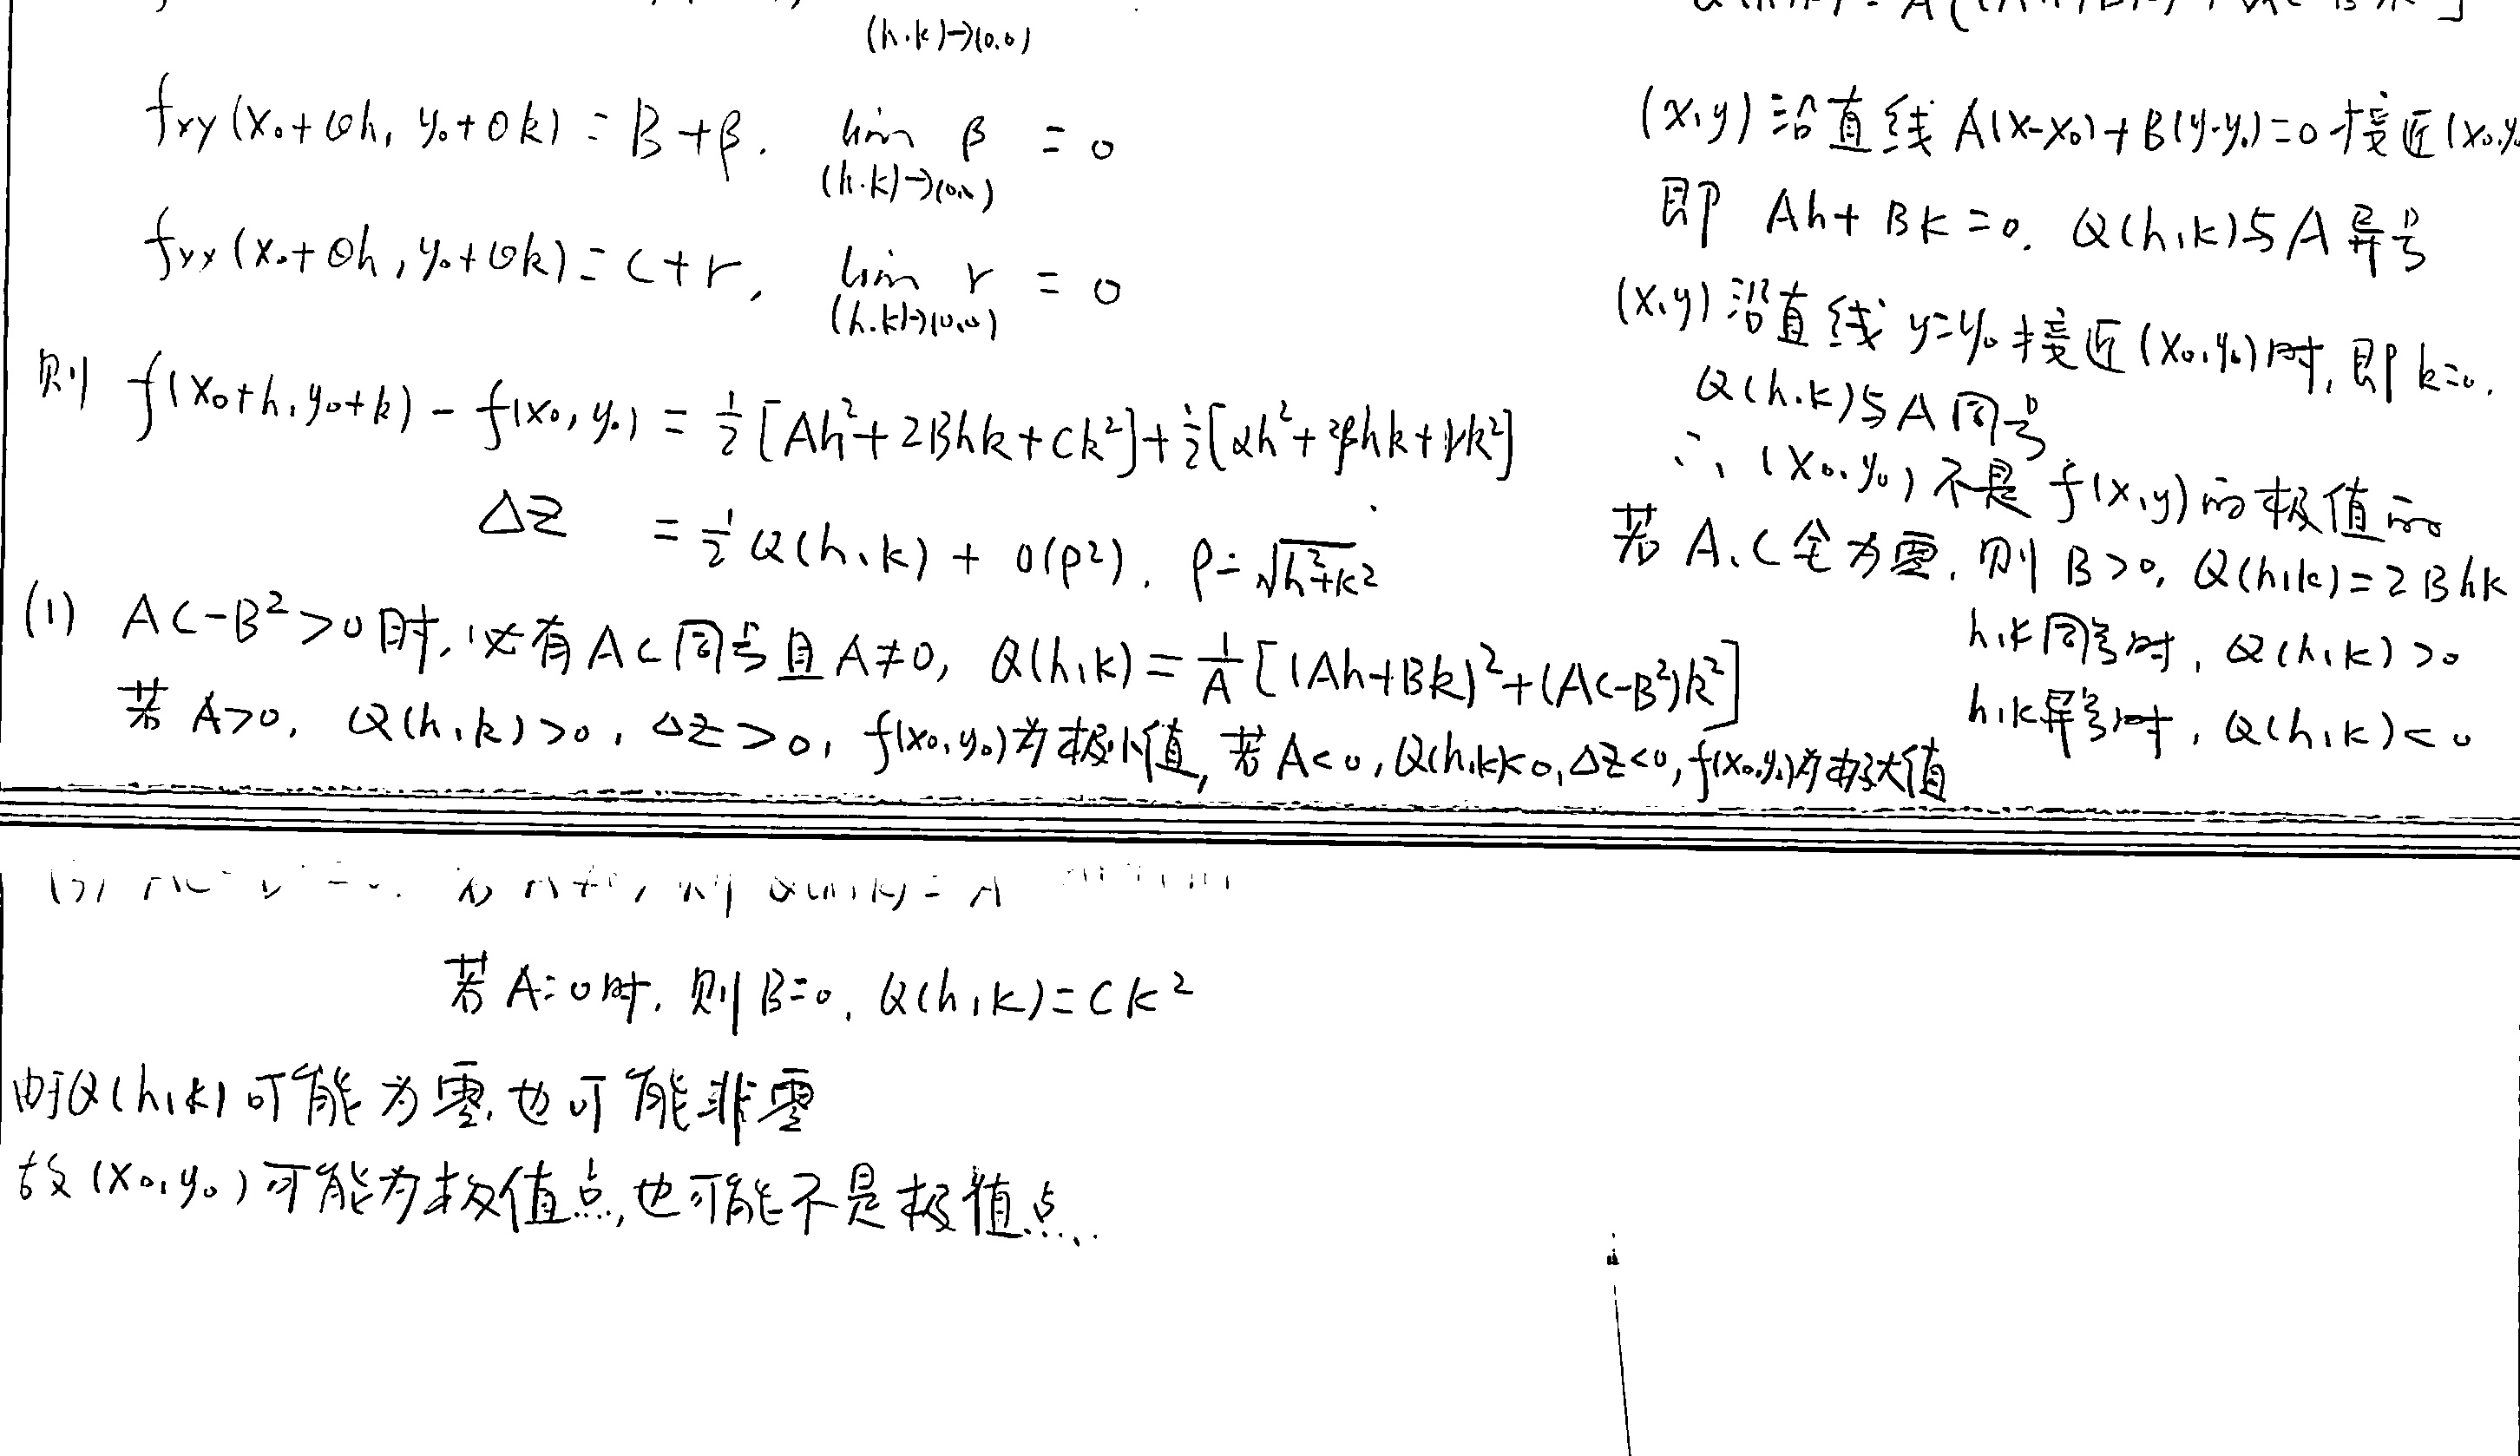 (h.k)→(0,0)
fxy(x₀+θh, y₀+θk) = B+β. lim β = 0
(h.k)→(0,0)
fyy(x₀+θh, y₀+θk) = C+r, lim r = 0
(h.k)→(0,0)
则 f(x₀+h, y₀+k) - f(x₀, y₀) = ½[Ah²+2Bhk+Ck²]+½[αh²+2βhk+rk²]
Δz = ½Q(h,k) + o(ρ²). ρ=√h²+k²
(1) AC-B²>0时, 必有AC同号且A≠0, Q(h,k)=1/A[(Ah+Bk)²+(AC-B²)k²]
若A>0, Q(h,k)>0, Δz>0, f(x₀,y₀)为极小值, 若A<0, Q(h,k)<0, Δz<0, f(x₀,y₀)为极大值
(x,y)沿直线A(x-x₀)+B(y-y₀)=0接近(x₀,y₀
即 Ah+Bk=0. Q(h,k)与A异号
(x,y)沿直线y=y₀接近(x₀,y₀)时, 即k=0.
Q(h.k)与A同号
∴ (x₀,y₀)不是f(x,y)的极值
若A、C全为零, 则B>0, Q(h,k)=2Bhk
h,k同号时, Q(h,k)>0
h,k异号时, Q(h,k)<0
若A=0时, 则B=0, Q(h,k)=Ck²
由于Q(h,k)可能为零,也可能非零
故(x₀,y₀)可能为极值点,也可能不是极值点